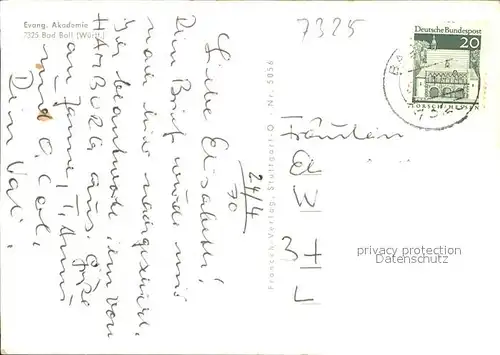 Evang. Akademie
7325 Bad Boll (Württ.)
7325
Deutsche Bundespost
20
LORSCH/HESSEN
24/4
70
Liebe Elisabeth!
Dein Brief wurde mir
nach hier nachgesandt.
Ich beantworte ihn von
HAMBURG aus. Grüße
an Hanne, T. Anni
und O. Carl.
Dein Vati.
Franckh-Verlag, Stuttgart-O · Nr. 5056
Fräulein
El
W
3
L
privacy protection
Datenschutz